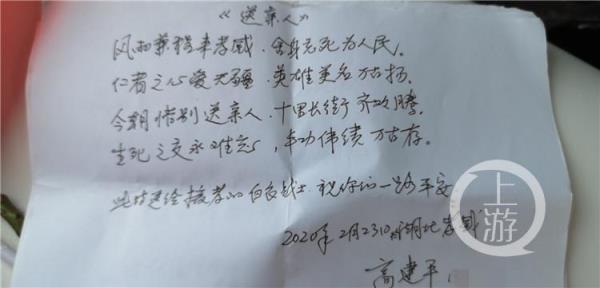 《送亲人》
风雨兼程来孝感.舍身忘死为人民.
仁者之心爱无疆.英雄美名万古扬.
今朝惜别送亲人.十里长街齐欢腾.
生死之交永难忘,丰功伟绩万古存.
此诗送给援孝的白衣战士.祝你们一路平安
2020年2月23日 湖北孝感
高建平
上游